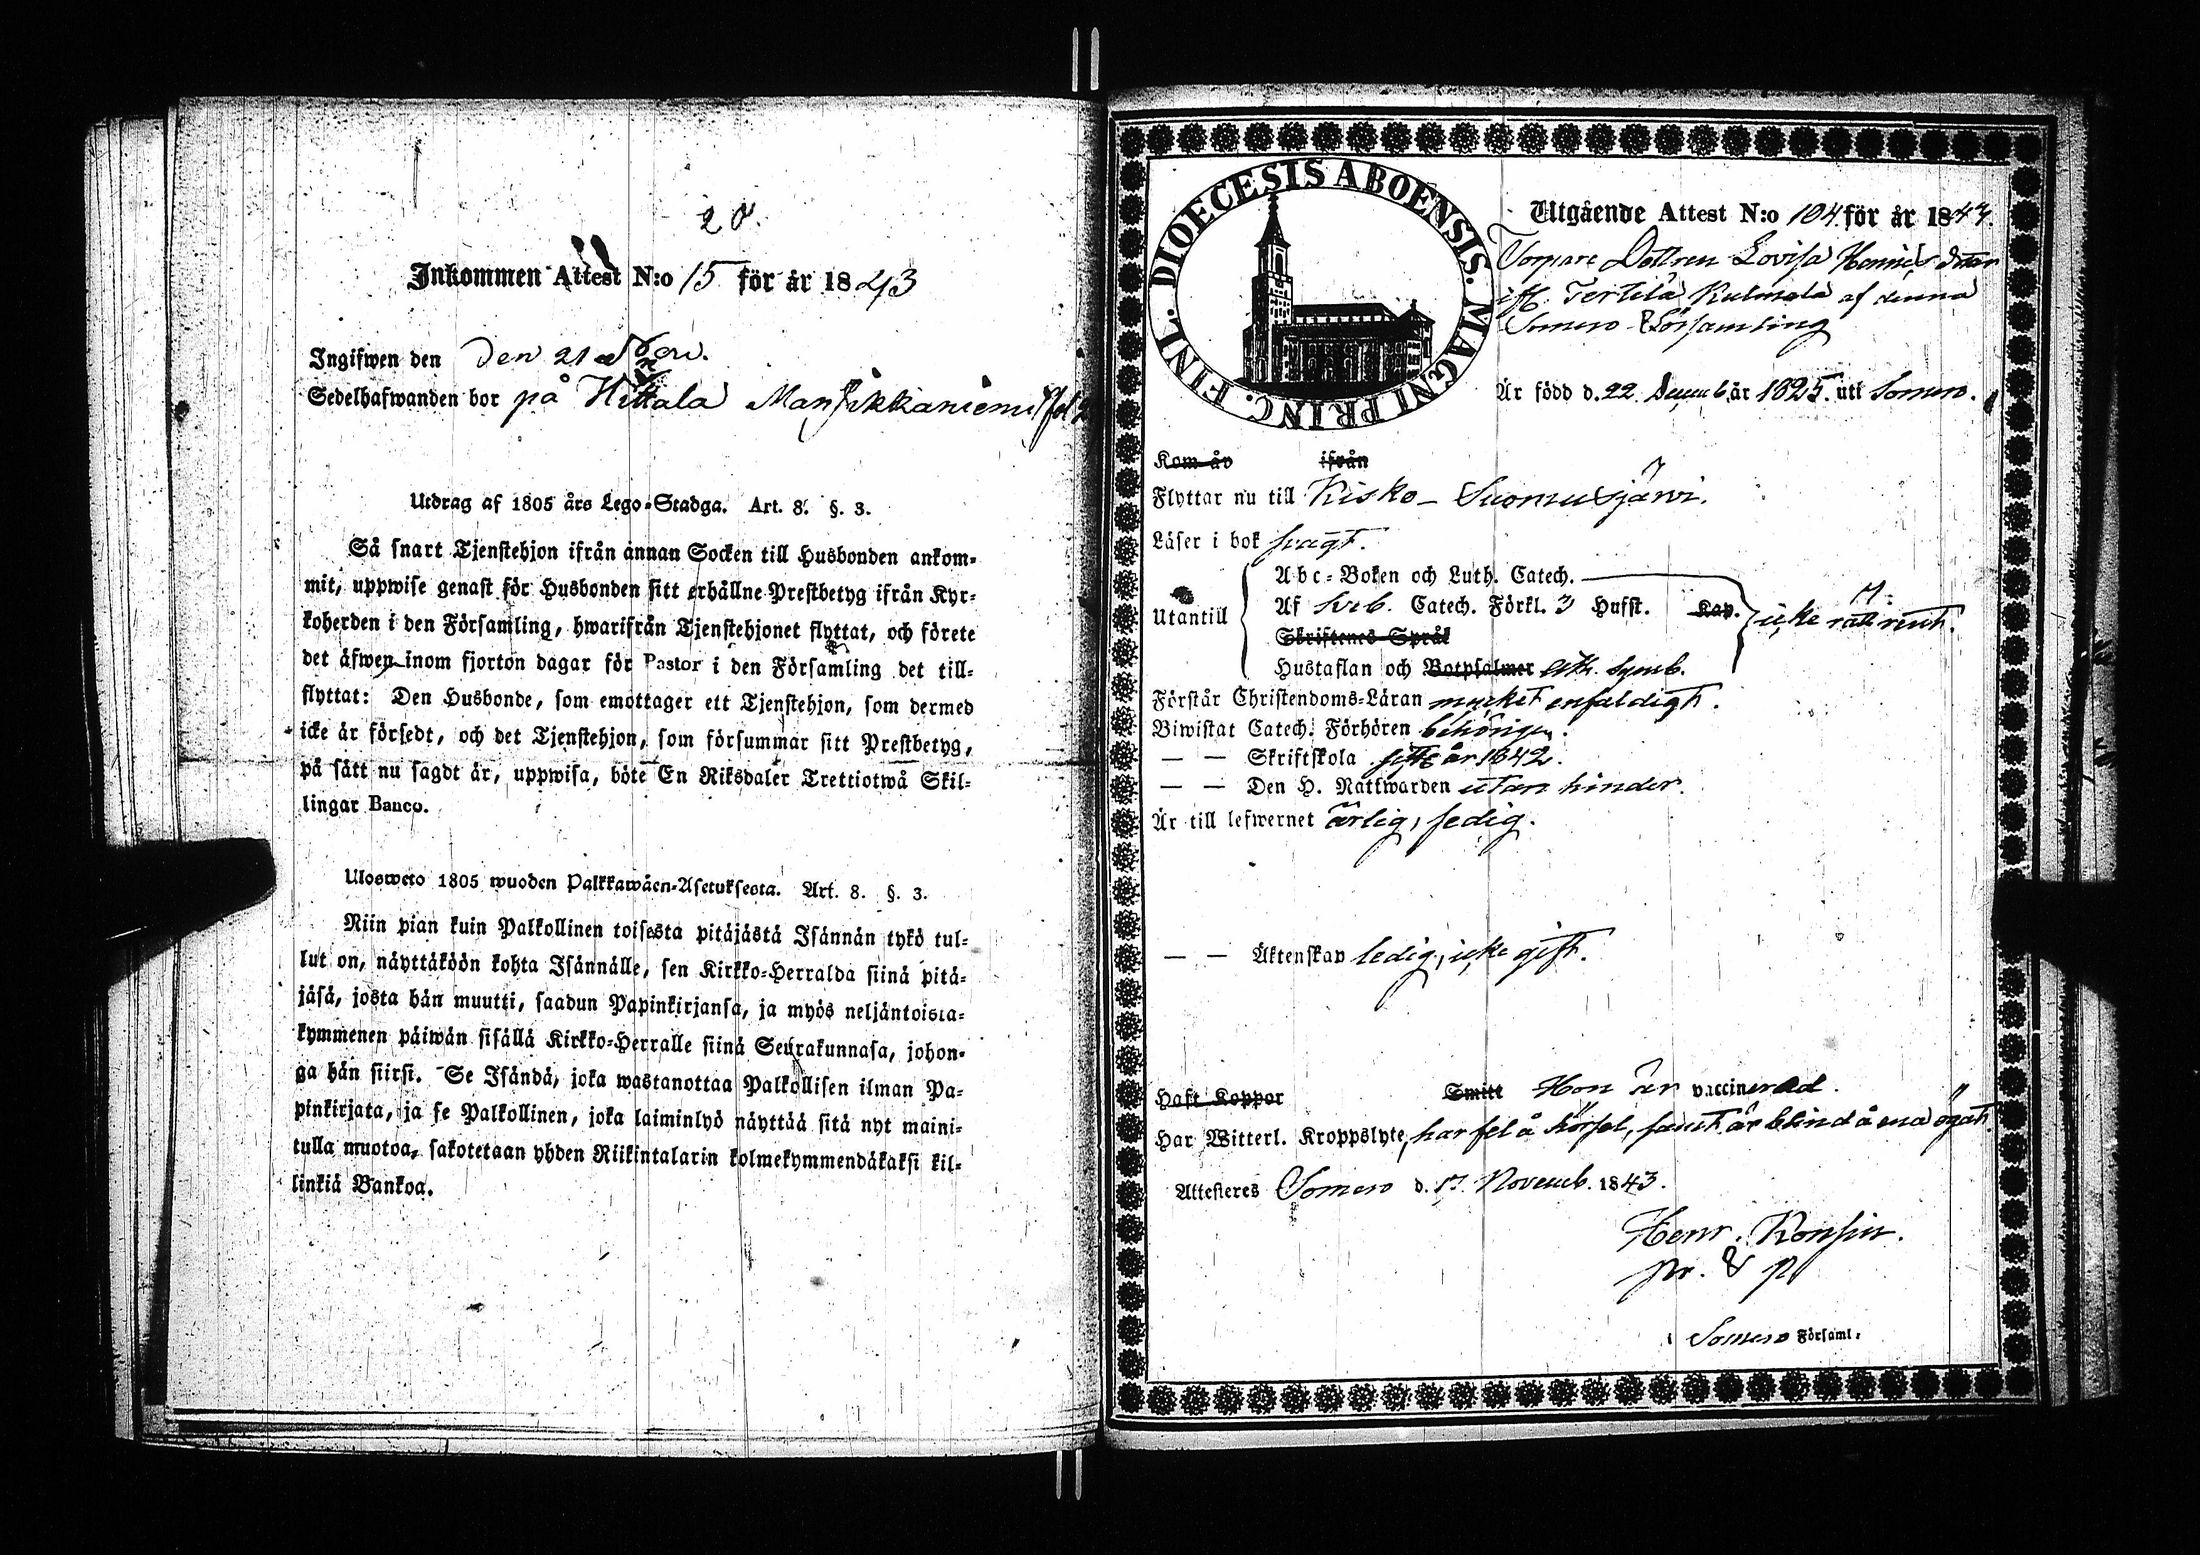 20.
Inkommen Attest N:o 15 för år 1843
Ingifwen den Den 21 Nov.
Sedelhafwanden bor på Kittala Mansikkaniemi
Utdrag af 1805 års Lego-Stadga. Art. 8. §. 3.
Så snart Tjenstehjon ifrån annan Socken till Husbonden ankom-
mit, uppwise genast för Husbonden sitt erhållne Prestbetyg ifrån Kyr-
koherden i den Församling, hwarifrån Tjenstehjonet flyttat, och förete
det äfwen inom fjorton dagar för Pastor i den Församling det till-
flyttat: Den Husbonde, som emottager ett Tjenstehjon, som dermed
icke är försedt, och det Tjenstehjon, som försummar sitt Prestbetyg,
på sätt nu sagdt är, uppwisa, böte En Riksdaler Trettiotwå Skil-
lingar Banco.
Ulosweto 1805 wuoden Palkkawäen-Asetuksesta. Art. 8. §. 3.
Niin pian kuin Palkollinen toisesta pitäjästä Isännän tykö tul-
lut on, näyttäköön kohta Isännälle, sen Kirkko-Herralda siinä pitä-
jäsä, josta hän muutti, saadun Papinkirjansa, ja myös neljäntoista-
kymmenen päiwän sisällä Kirkko-Herralle siinä Seurakunnasa, johon-
ga hän siirsi. Se Isändä, joka wastanottaa Palkollisen ilman Pa-
pinkirjata, ja se Palkollinen, joka laiminlyö näyttää sitä nyt maini-
tulla muotoa, sakotetaan yhden Riikintalarin kolmekymmendäkaksi kil-
linkiä Bankoa.
DIOECESIS ABOENSIS. MAGNI PRINC. FINL.
Utgående Attest N:o 104 för år 1843.
Torpare Dottren Lovisa Henricsdotter
ifr. Terttilä Kulmala af denna
Somero Församling
Är född d. 22 Decemb. år 1825. uti Somero.
Kom år ifrån
Flyttar nu till Kisko - Suomusjärvi.
Läser i bok svagt.
Utantill
Abc-Boken och Luth. Catech.
Af Sveb. Catech. Förkl. 3 Hufst. Kap.
icke rätt rent.
Skriftenes Språk
Hustaflan och Botpsalmer Ath. Symb.
Förstår Christendoms-Läran mycket enfaldigt.
Biwistat Catech. Förhören behörigen.
— — Skriftskola sistl. år 1842.
— — Den H. Nattwarden utan hinder.
Är till lefwernet ärlig, sedig.
— — Äktenskap ledig, icke gift.
Haft Koppor Smitt Hon är vaccinerad.
Har Witterl. Kroppslyte, har fel å hörsel, samt är blind å ena ögat.
Attesteres Somero d. 17 Novemb. 1843.
Henr. Konsin.
pr. & p
i Somero Församl: